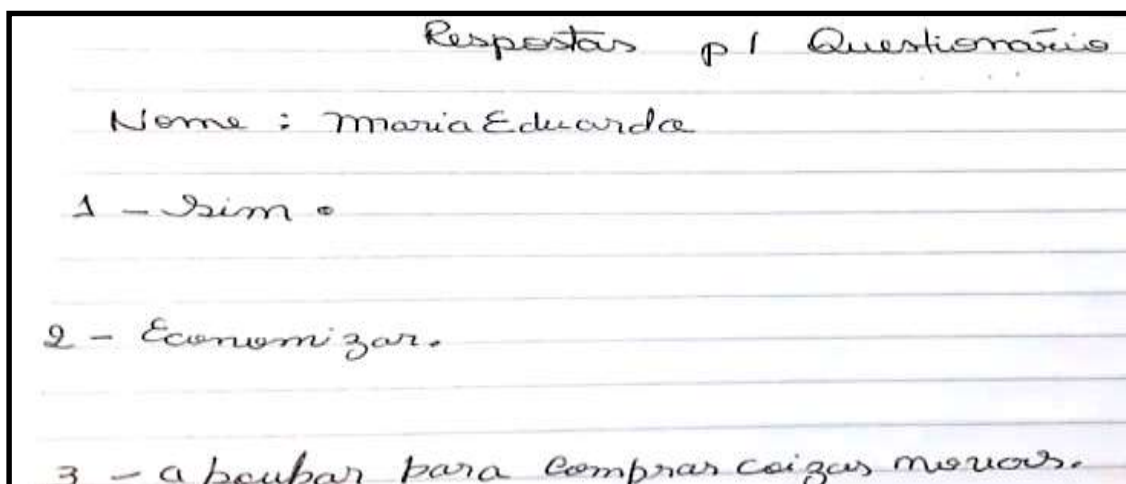 Respostas p/ Questionário
Nome : Maria Eduarda
1 - Sim.
2 - Economizar.
3 - a poupar para comprar coizas novas.